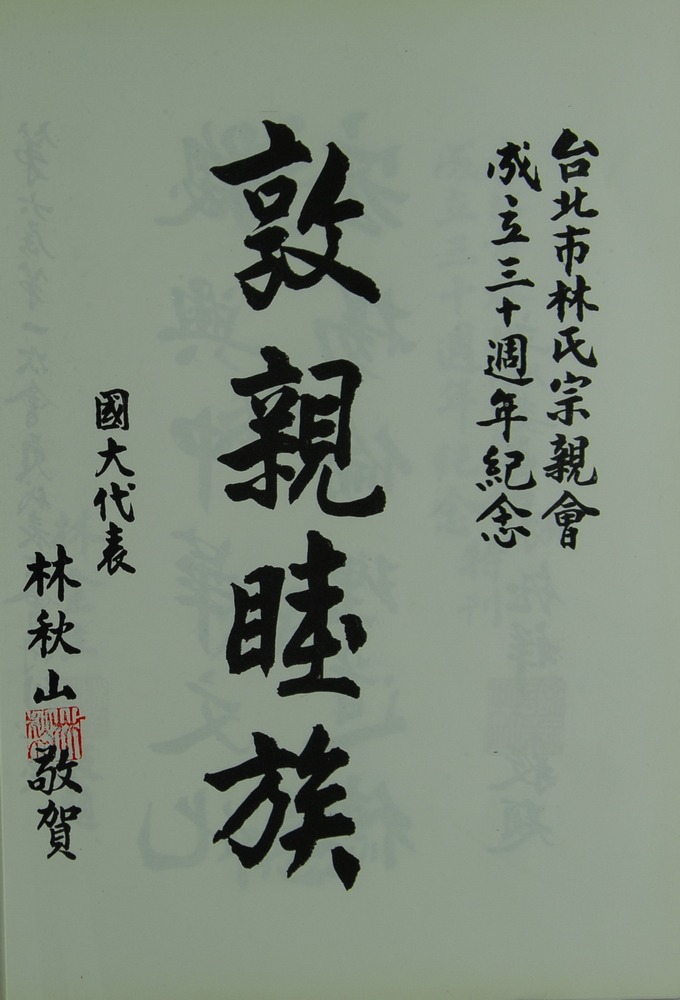 台北市林氏宗親會
成立三十週年紀念
敦親睦族
國大代表
林秋山敬賀